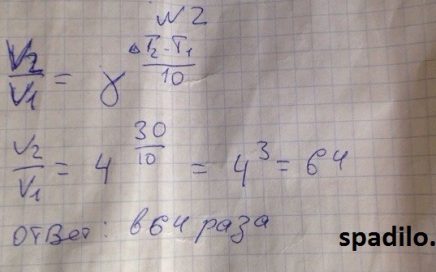 №2
V2/V1 = γ^(T2-T1)/10
V2/V1 = 4^30/10 = 4^3 = 64
ответ: в 64 раза
spadilo.